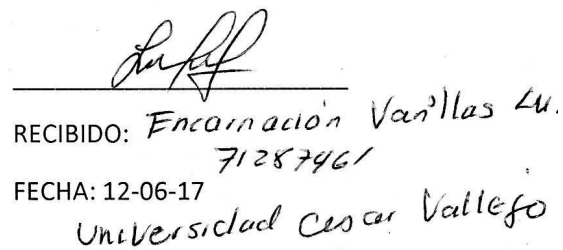 RECIBIDO: Encarnación Varillas Lu.
71287461
FECHA: 12-06-17
Universidad Cesar Vallejo